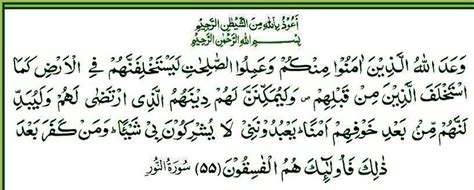 اَعُوْذُ بِاللّٰهِ مِنَ الشَّيْطٰنِ الرَّجِيْمِ
بِسْمِ اللّٰهِ الرَّحْمٰنِ الرَّحِيْمِ
وَعَدَ اللّٰهُ الَّذِيْنَ اٰمَنُوْا مِنْكُمْ وَعَمِلُوا الصّٰلِحٰتِ لَيَسْتَخْلِفَنَّهُمْ فِى الْاَرْضِ كَمَا
اسْتَخْلَفَ الَّذِيْنَ مِنْ قَبْلِهِمْ ص وَلَيُمَكِّنَنَّ لَهُمْ دِيْنَهُمُ الَّذِى ارْتَضٰى لَهُمْ وَلَيُبَدِّ
لَنَّهُمْ مِنْ بَعْدِ خَوْفِهِمْ اَمْنًا ؕ يَعْبُدُوْنَنِىْ لَا يُشْرِكُوْنَ بِىْ شَيْئًا ؕ وَمَنْ كَفَرَ بَعْدَ
ذٰلِكَ فَاُولٰٓئِكَ هُمُ الْفٰسِقُوْنَ (٥٥) سُوْرَةُ النُّوْر